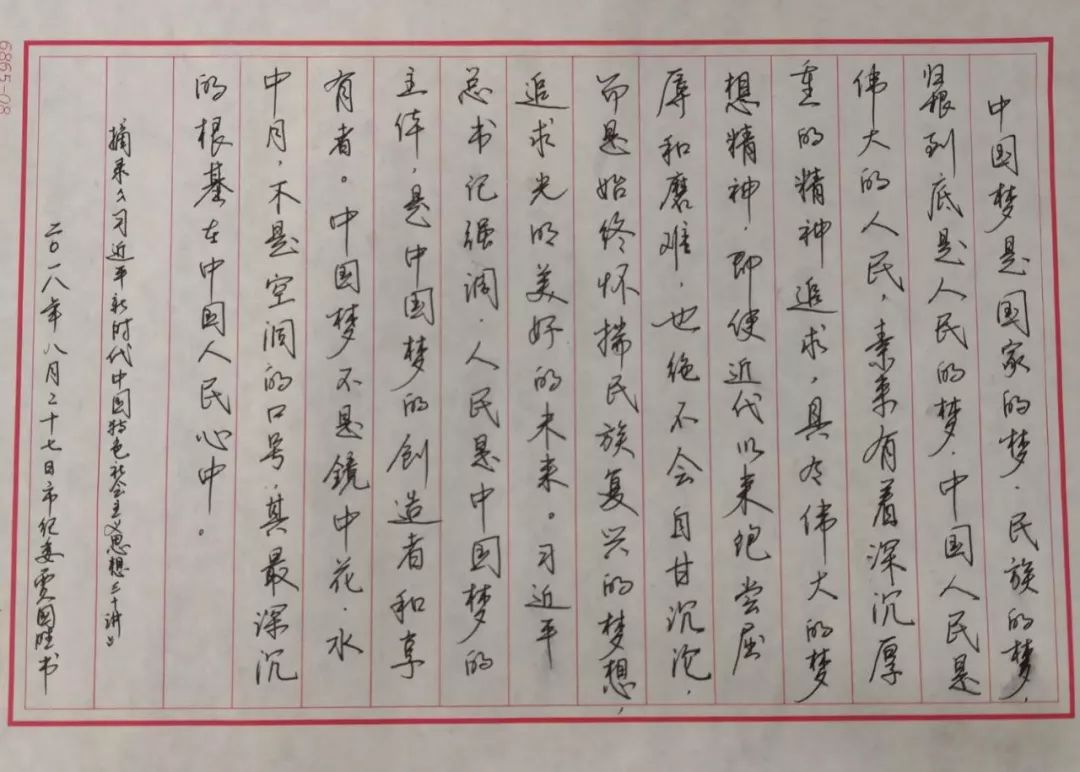 中国梦是国家的梦、民族的梦，
归根到底是人民的梦。中国人民是
伟大的人民，素来有着深沉厚
重的精神追求，具有伟大的梦
想精神，即使近代以来饱尝屈
辱和磨难，也绝不会自甘沉沦，
而是始终怀揣民族复兴的梦想，
追求光明美好的未来。习近平
总书记强调，人民是中国梦的
主体，是中国梦的创造者和享
有者。中国梦不是镜中花、水
中月，不是空洞的口号，其最深沉
的根基在中国人民心中。
摘录《习近平新时代中国特色社会主义思想三十讲》
二〇一八年八月二十七日市纪委贾国胜书
6865-08